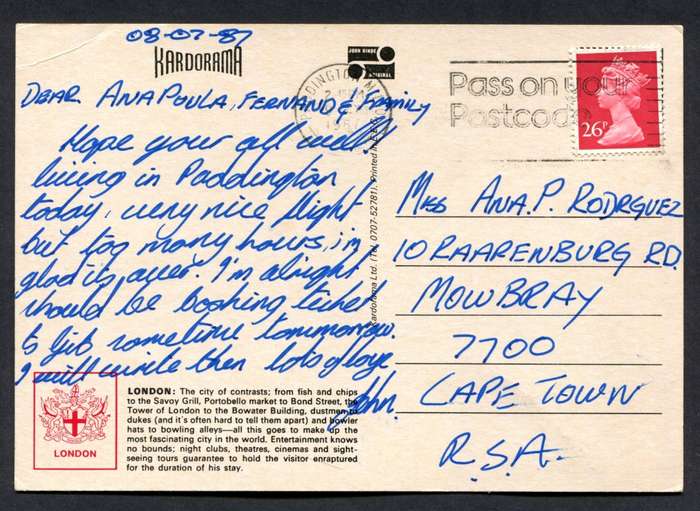 08-07-87
KARDORAMA
JOHN HINDE
DEAR ANA POULA, FERNAND & Family
Hope your all well.
living in Paddington
today, very nice flight
but too many hours, i'm
glad its over. I'm alright
should be booking ticket
to Gib sometime tommorrow.
I will write then lots of love
John.
LONDON
LONDON: The city of contrasts; from fish and chips
to the Savoy Grill, Portobello market to Bond Street, the
Tower of London to the Bowater Building, dustmen to
dukes (and it's often hard to tell them apart) and bowler
hats to bowling alleys—all this goes to make up the
most fascinating city in the world. Entertainment knows
no bounds; night clubs, theatres, cinemas and sight-
seeing tours guarantee to hold the visitor enraptured
for the duration of his stay.
Kardorama Ltd. (Tel. 0707-52781). Printed in E.E.C.
PADDINGTON
Pass on your
Postcode
26P
Miss ANA.P. RODRGUEZ
10 RAARENBURG RD.
MOWBRAY
7700
CAPE TOWN
R.S.A.